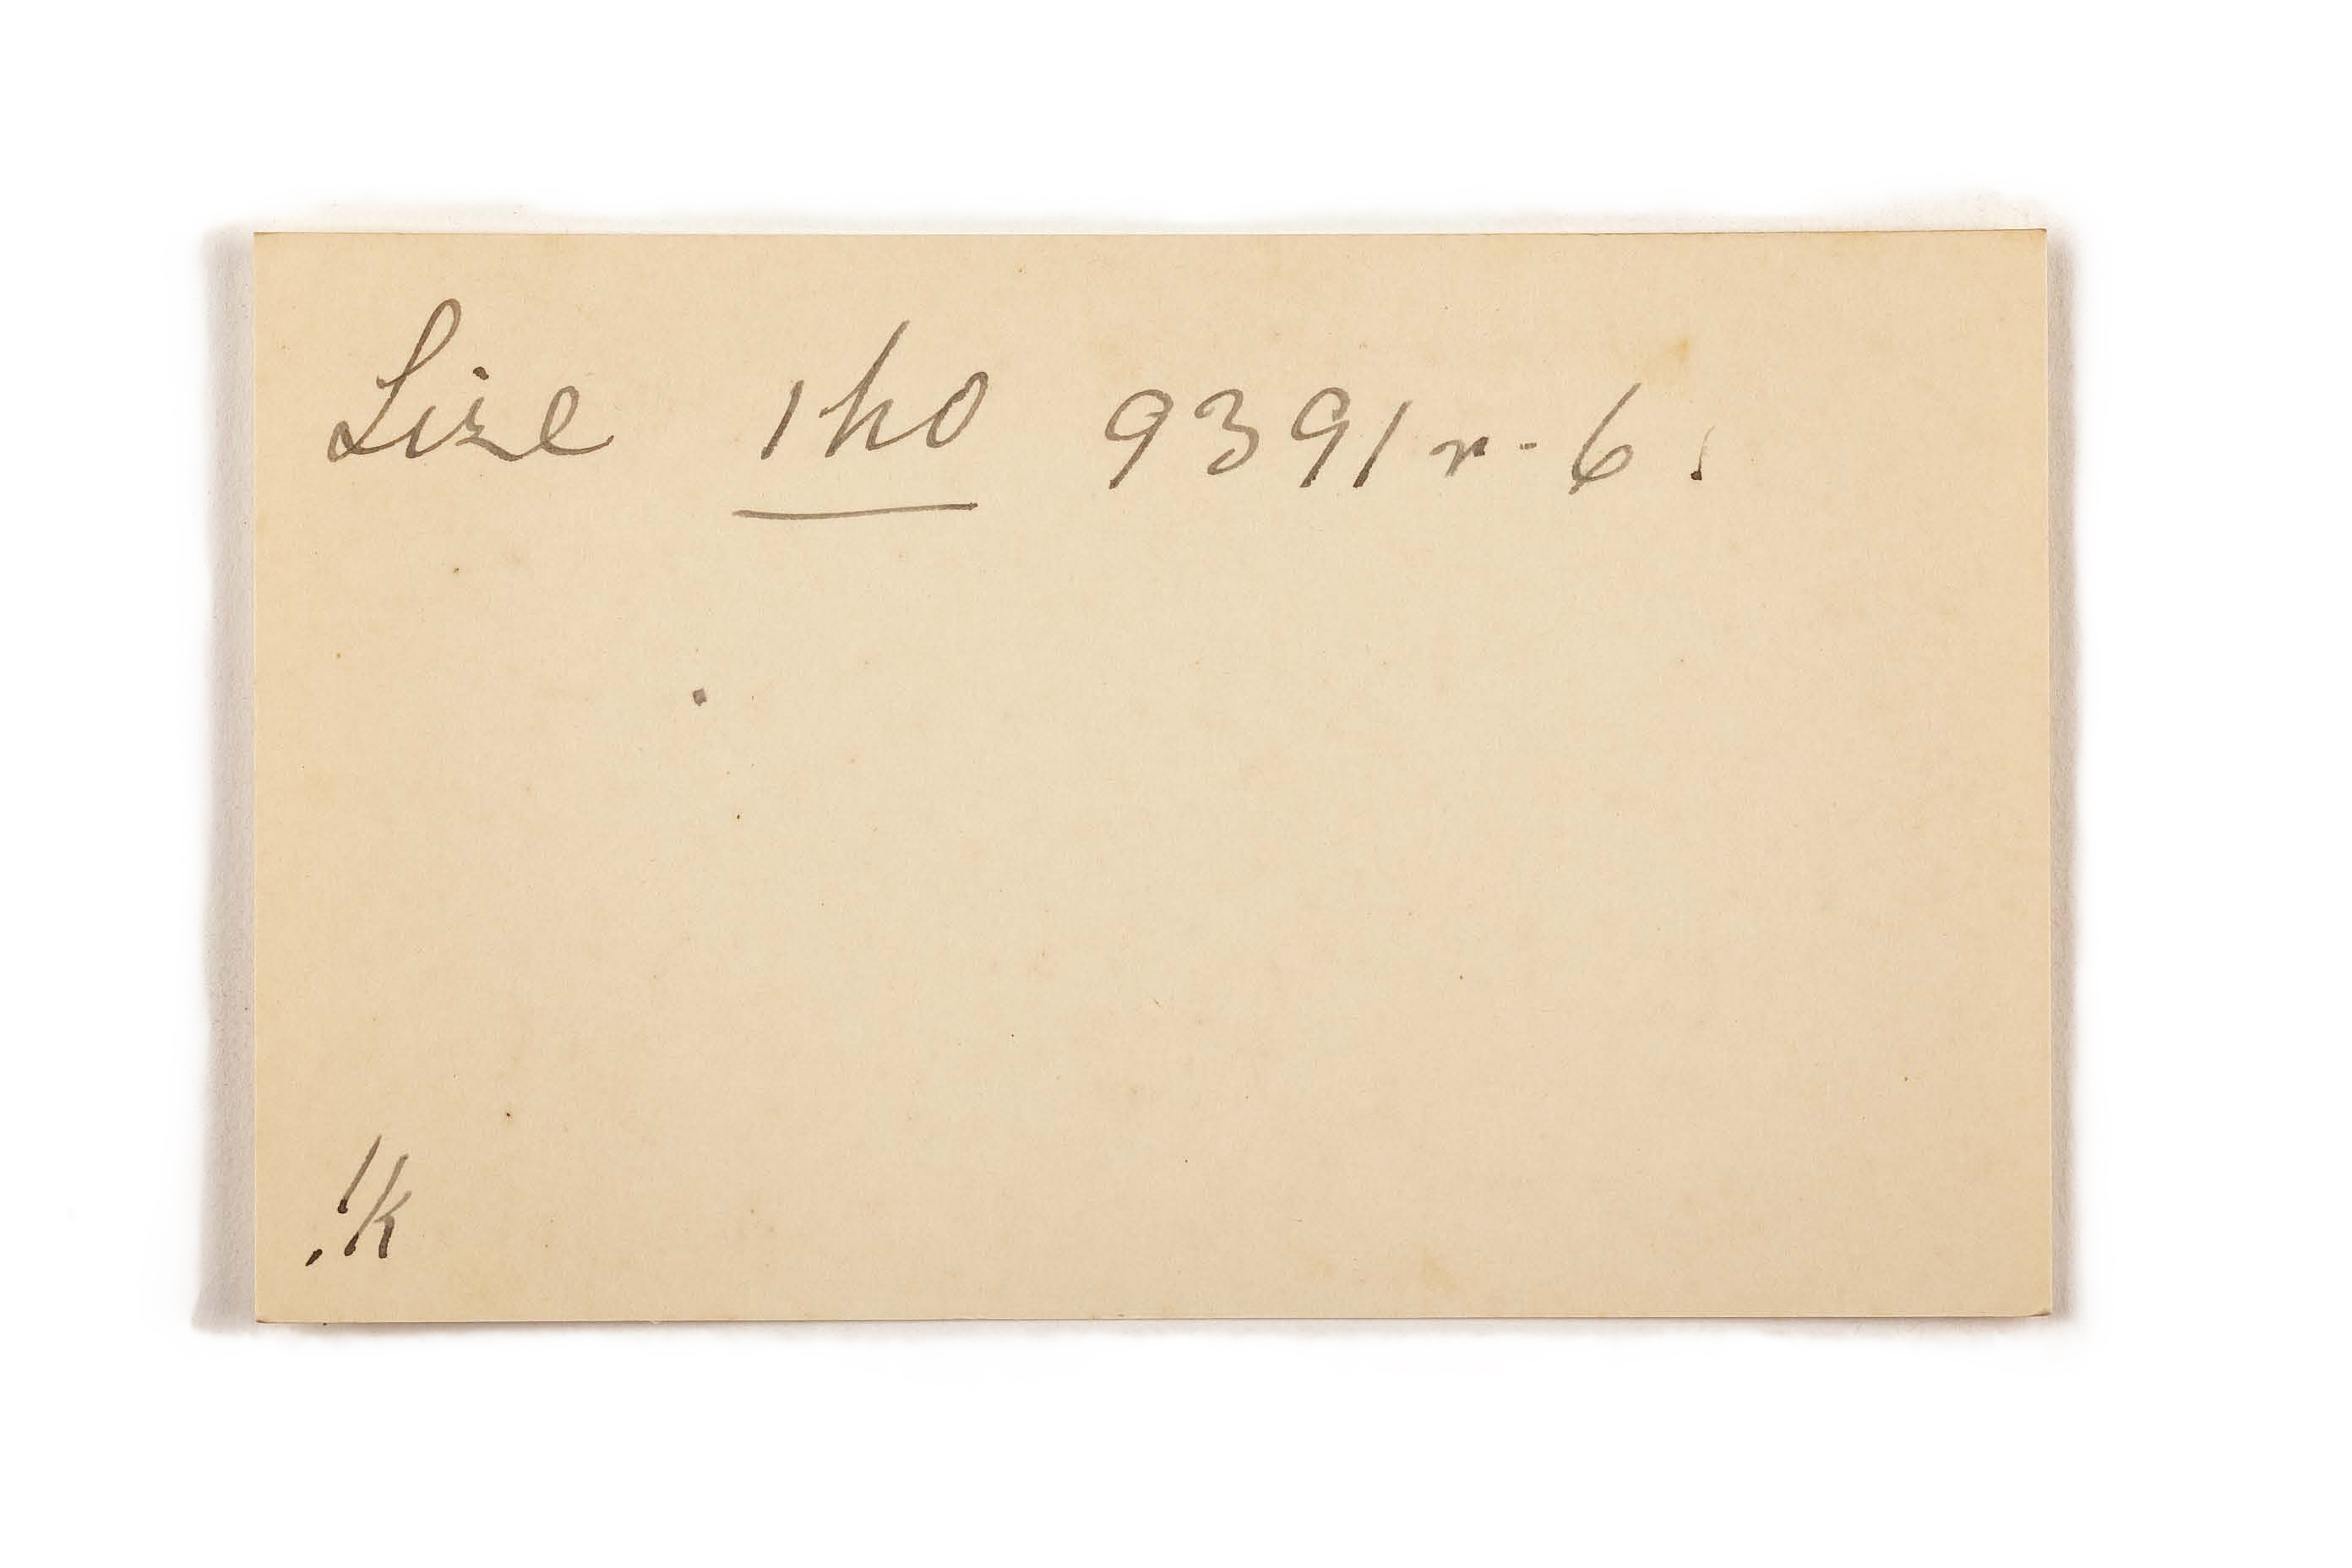 Size 1h0 9391 r - 6.